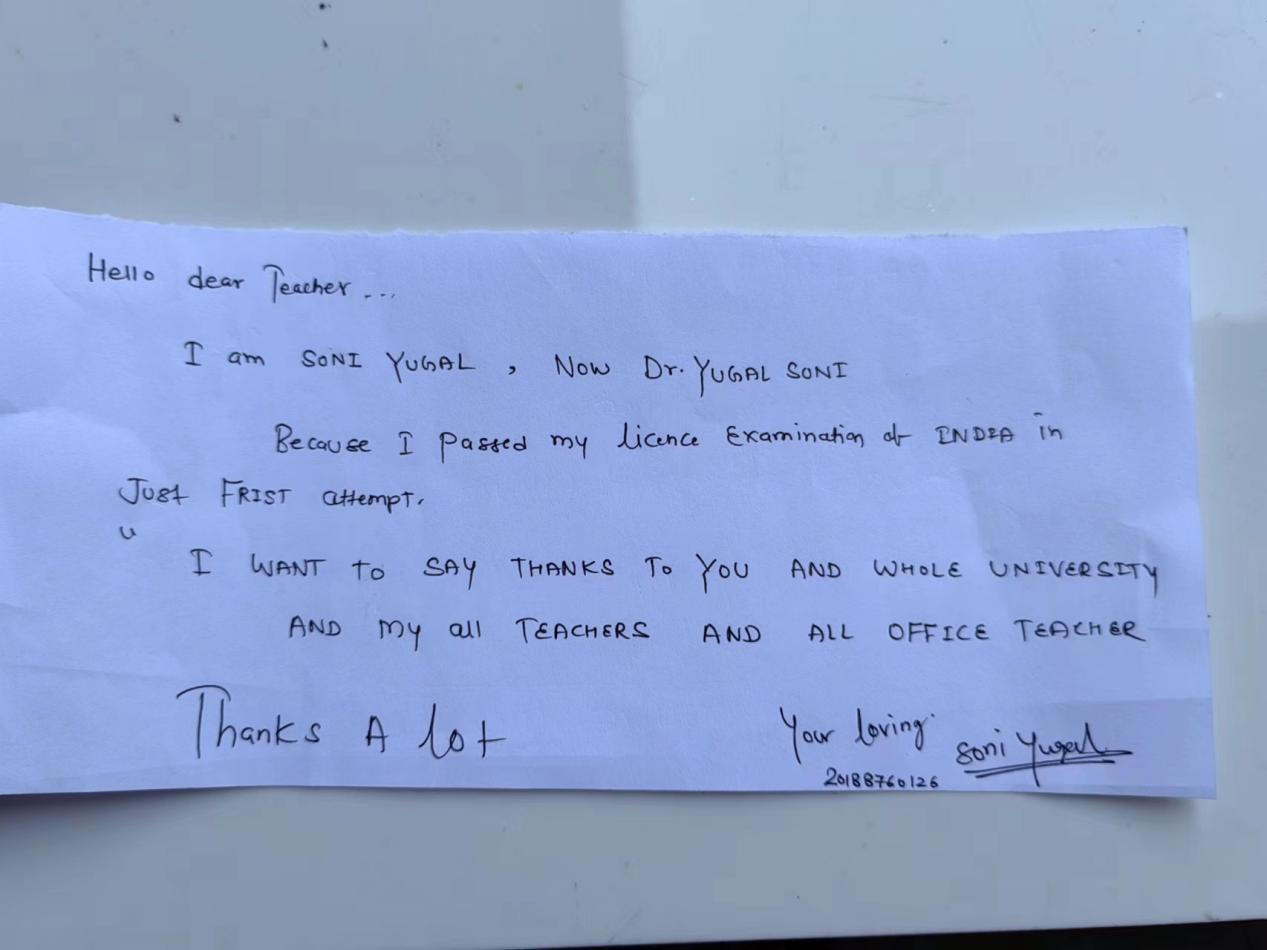 Hello dear Teacher ...
I am SONI YUGAL , Now Dr. YUGAL SONI
Because I passed my licence Examination of INDIA in
Just FRIST attempt.
I WANT TO SAY THANKS TO YOU AND WHOLE UNIVERSITY
AND my all TEACHERS AND ALL OFFICE TEACHER
Thanks A lot
Your loving
Soni Yugal
20188760126